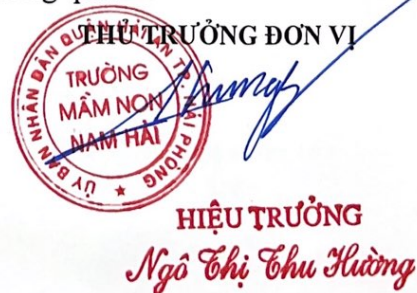 THỦ TRƯỞNG ĐƠN VỊ
ỦY BAN NHÂN DÂN QUẬN HẢI AN TP. HẢI PHÒNG
TRƯỜNG
MẦM NON
NAM HẢI
HIỆU TRƯỞNG
Ngô Thị Thu Hường